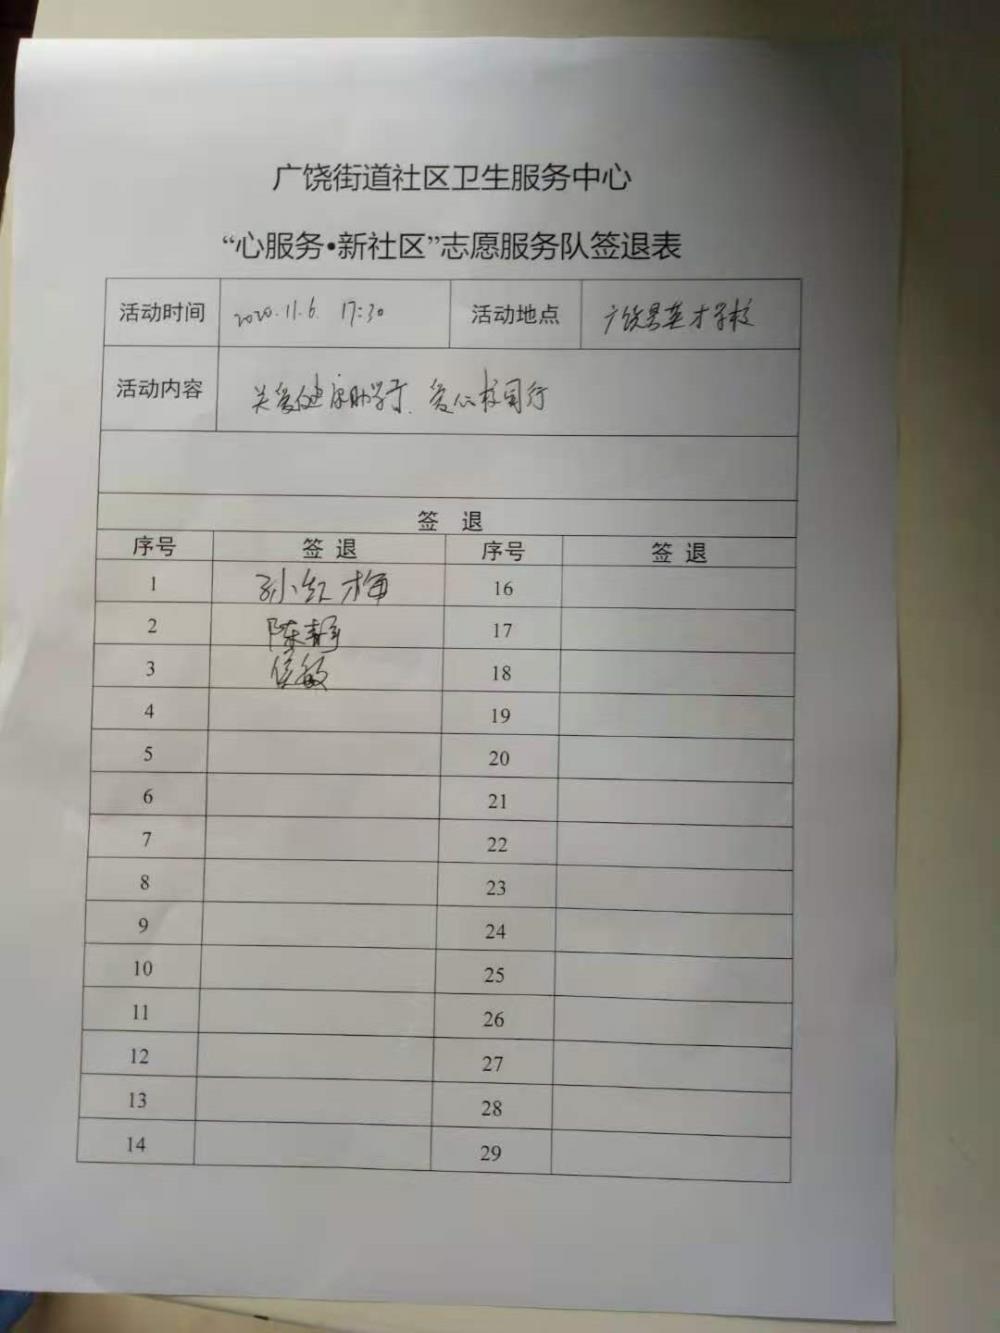 广饶街道社区卫生服务中心
“心服务•新社区”志愿服务队签退表
活动时间 2020.11.6. 17:30 活动地点 广饶县英才学校
活动内容 关爱健康助学子、爱心校园行
签 退
序号 签 退 序号 签 退
1 孙红梅 16
2 陈静 17
3 侯敏 18
4 19
5 20
6 21
7 22
8 23
9 24
10 25
11 26
12 27
13 28
14 29